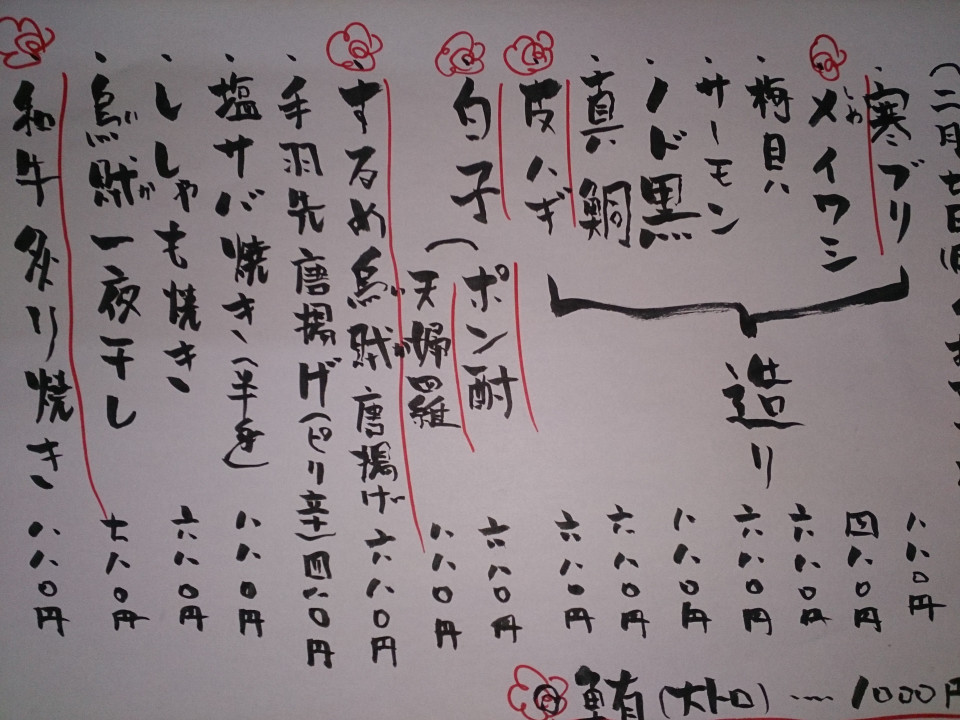 (二月七日
寒ブリ 八八〇円
〆イワシ 四八〇円
しめ
梅貝 六八〇円
サーモン 六八〇円
ノド黒 八八〇円
真鯛 六八〇円
皮ハギ 六八〇円
造り
白子(ポン酎 六八〇円
天婦羅 八八〇円
するめ烏賊唐揚げ 六八〇円
いか
手羽先唐揚げ(ピリ辛)四八〇円
塩サバ焼き(半身) 八八〇円
ししゃも焼き 六八〇円
烏賊一夜干し 七八〇円
いが
和牛炙り焼き 八八〇円
鮪(大トロ)……1000円